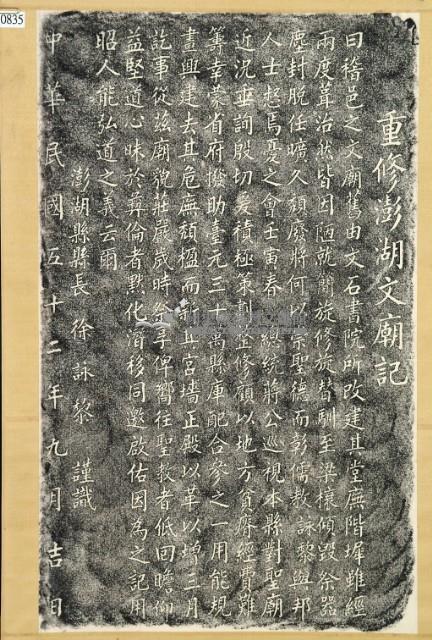 0835
重修澎湖文廟記
曰稽邑之文廟舊由文石書院所改建其堂廡階墀雖經
兩度葺治然皆因陋就簡旋修旋替馴至梁榱傾毀祭器
塵封脫任曠久頹廢將何以崇聖德而彰儒教詠黎與邦
人士惄焉憂之會壬寅春 總統蔣公巡視本縣對聖廟
近況垂詢殷切爰積極策劃整修顧以地方貧瘠經費難
籌幸蒙省府撥助臺元三十萬縣庫配合參之一用能規
畫興建去其危廡頹楹而新其宮墻正殿以革以增三月
訖事從茲廟貌莊嚴歲時祭享俾嚮往聖教者低回瞻仰
益堅道心昧於彝倫者熟化潛移同邀啟佑因為之記用
昭人能弘道之義云爾
澎湖縣縣長 徐詠黎 謹識
中華民國五十二年九月吉日